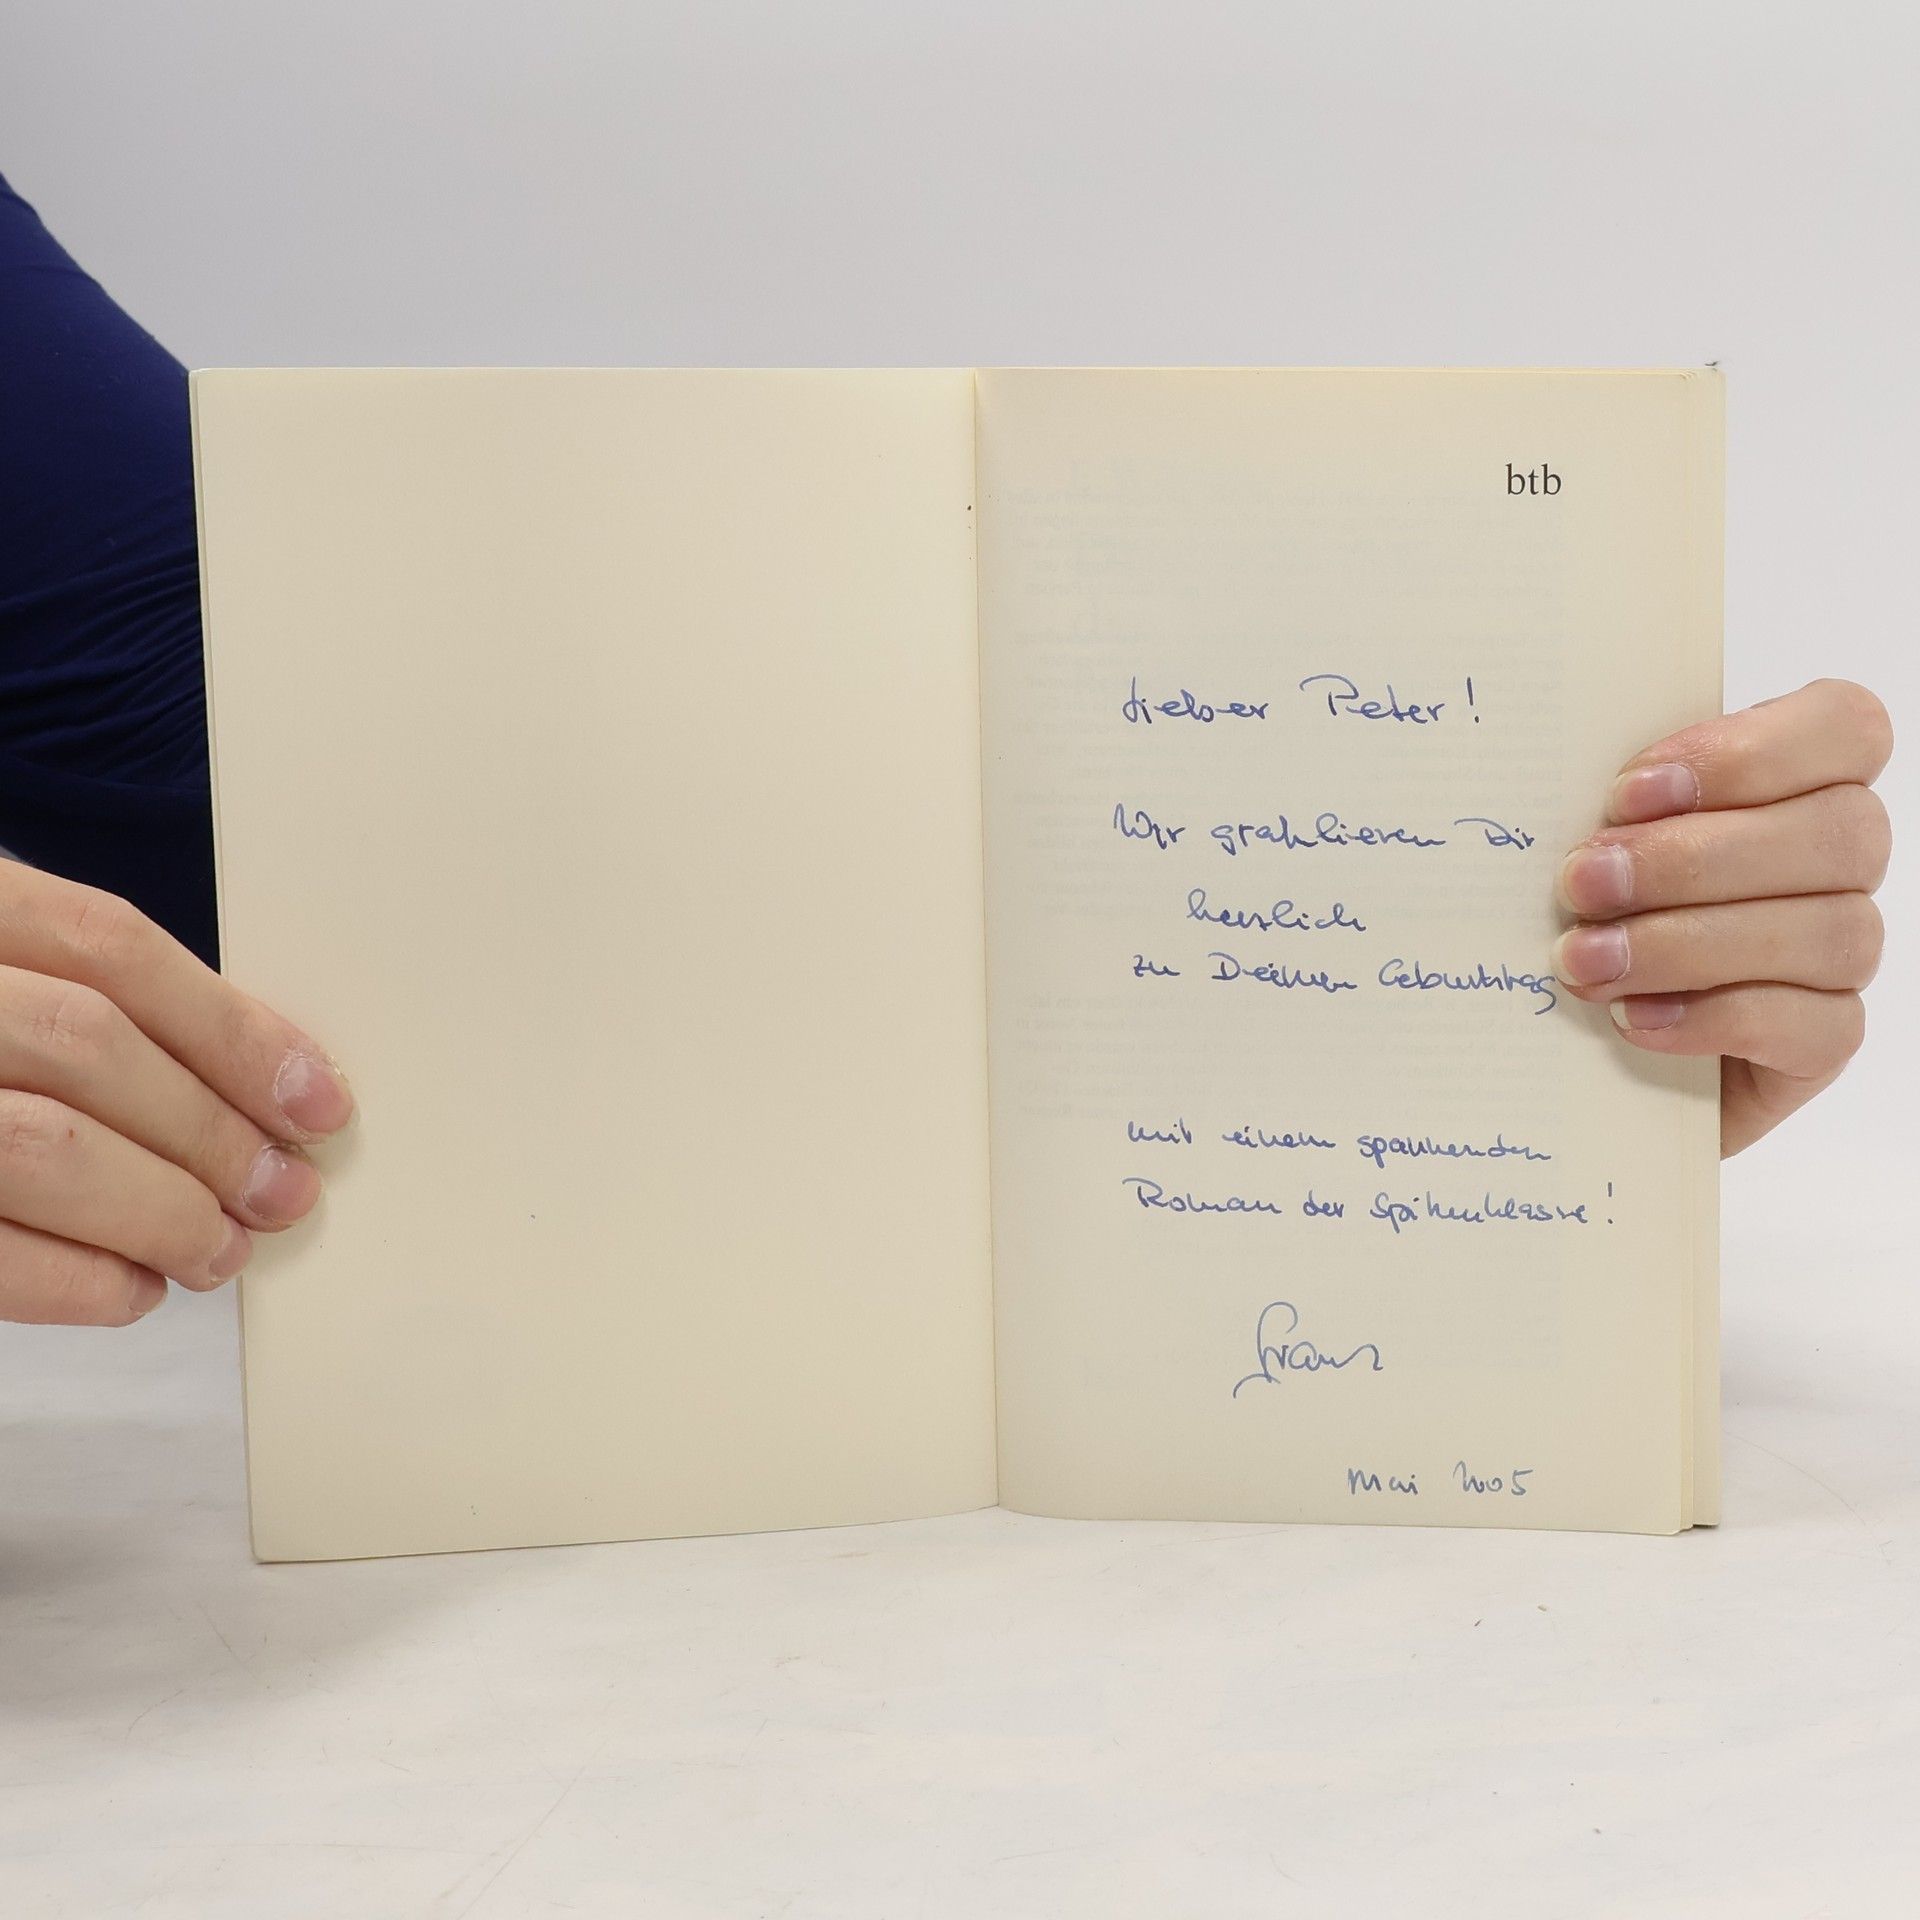 btb
Lieber Peter!
Wir gratulieren Dir
herzlich
zu Deinem Geburtstag
mit einem spannenden
Roman der Spitzenklasse!
Franz
Mai 2005